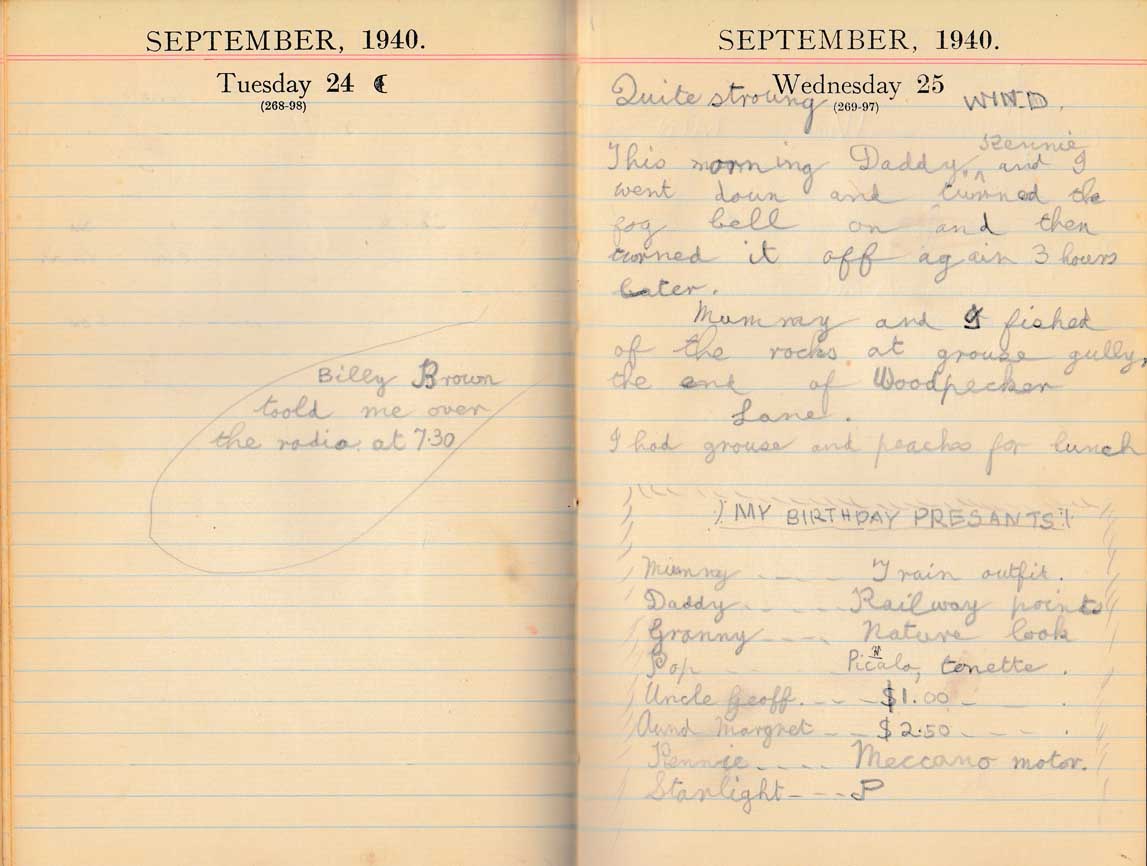 SEPTEMBER, 1940.
Tuesday 24
(268-98)
Billy Brown
toold me over
the radio at 7.30
SEPTEMBER, 1940.
Wednesday 25
(269-97)
Quite stroung WIND.
Kennie
This morning Daddy, and I
went doun and turned the
fog bell on and then
turned it off again 3 hours
later.
Mummy and I fished
of the rocks at grouse gully,
the end of Woodpecker
Lane.
I had grouse and peaches for lunch
MY BIRTHDAY PRESANTS
Mummy ---- Train outfit.
Daddy ---- Railway points
Granny ---- Nature book
Pop Picalo, tonette.
Uncle Geoff. --- $1.00
Aund Margret --- $2.50
Kennie ---- Meccano motor.
Starlight --- P